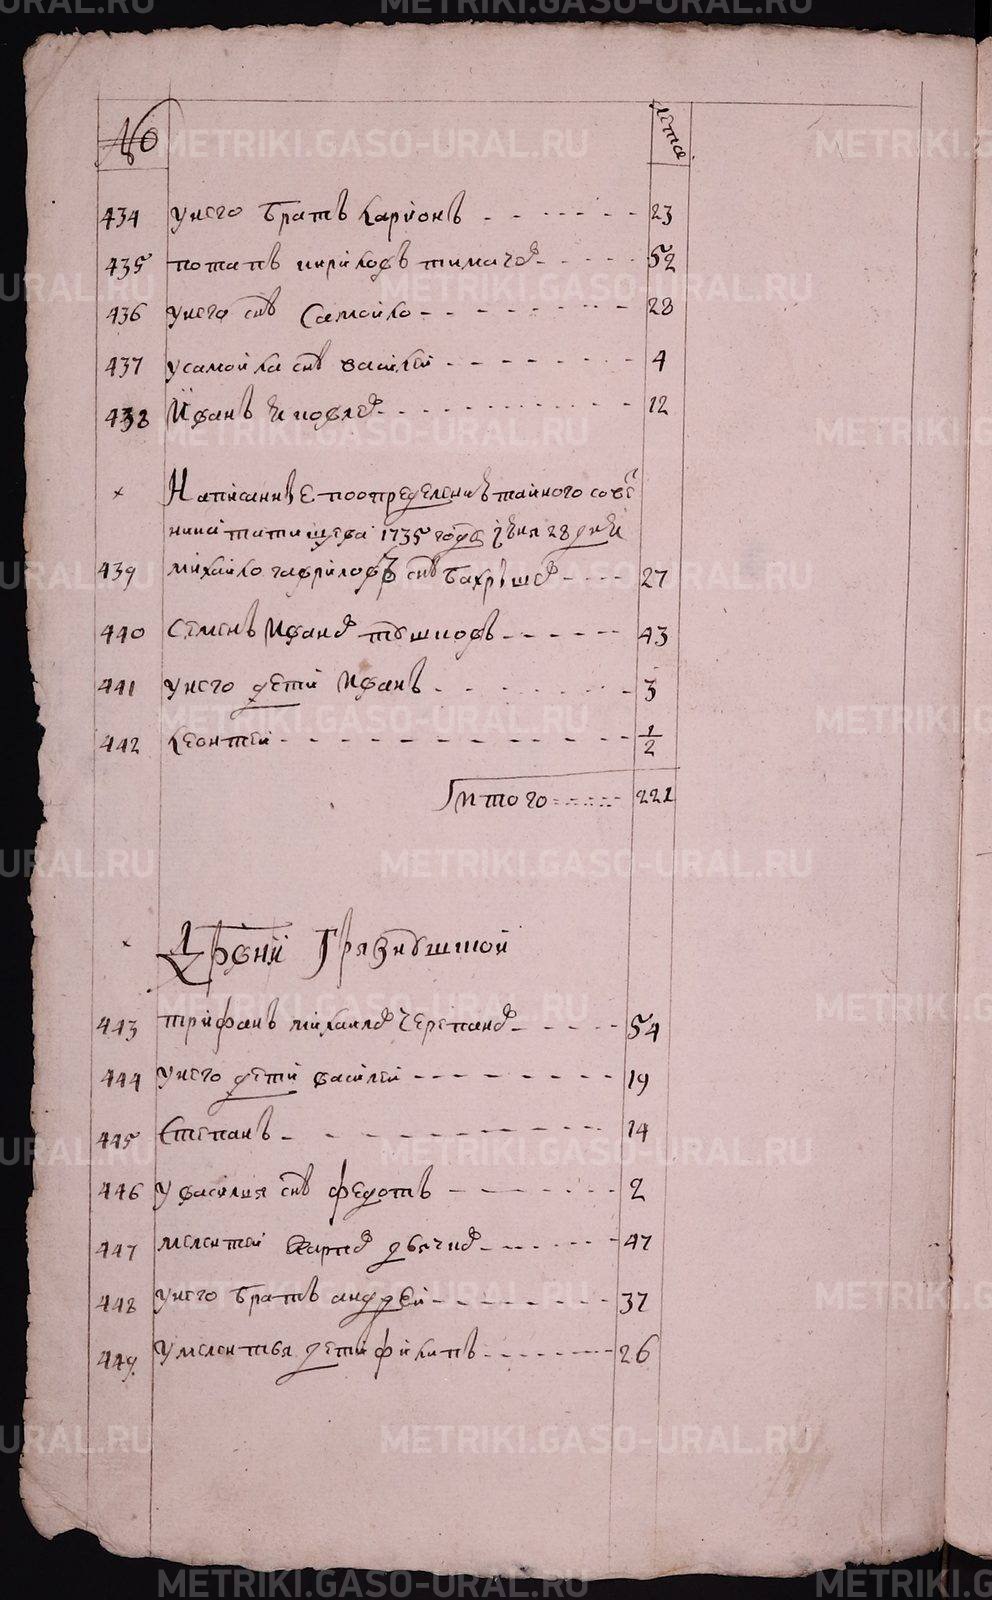 № лета
434 у него братъ Ларионъ 23
435 потапъ кириловъ тимачев 52
436 у него снъ Самойло 28
437 у самойла снъ василей 4
438 Иванъ 12
Написанные по определению тайного совет
ника татищева 1735 году июня 28 дня
439 михайло гавриловъ снъ бакрышев 27
440 Семенъ Иванов 43
441 у него дети Иванъ 3
442 леонтей 1/2
Итого 221
Дрвни Грязнушиной
443 трифанъ михаилов Черепанов 54
444 у него дети василей 19
445 Степанъ 14
446 у василия снъ федотъ 2
447 мелентей Карпов 47
448 у него братъ андрей 37
449 у мелентья дети филипъ 26
METRIKI.GASO-URAL.RU